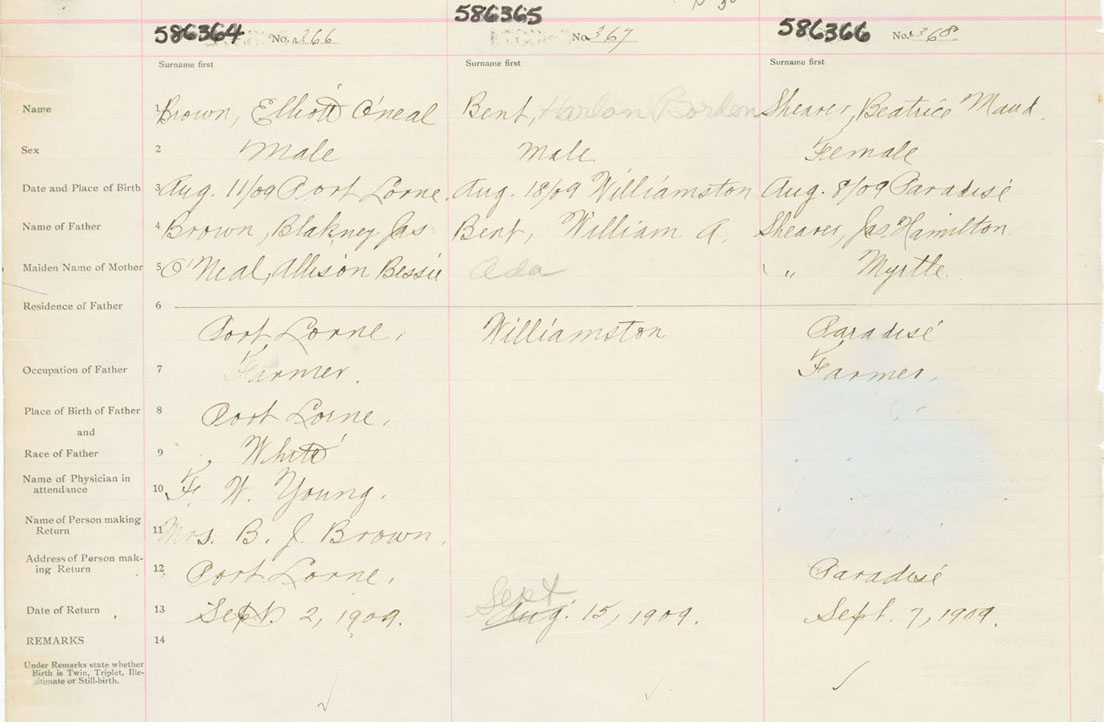 586364 No. 366 586365 No. 367 586366 No. 368
Surname first Surname first Surname first
Name 1 Brown, Elliott O'neal Bent, Harlan Borden Shearer, Beatrice Maud.
Sex 2 Male Male Female
Date and Place of Birth 3 Aug. 11/09 Port Lorne. Aug. 18/09 Williamston Aug. 8/09 Paradise
Name of Father 4 Brown, Blakney Jas Bent, William A. Shearer, Jas Hamilton
Maiden Name of Mother 5 O'Neal, Allison Bessie Ada " Myrtle
Residence of Father 6
Port Lorne, Williamston Paradise
Occupation of Father 7 Farmer. Farmer,
Place of Birth of Father 8 Port Lorne,
and
Race of Father 9 White
Name of Physician in
attendance 10 F. W. Young.
Name of Person making
Return 11 Mrs. B. J. Brown.
Address of Person mak-
ing Return 12 Port Lorne, Paradise
Sept
Date of Return 13 Sept. 2, 1909. Aug. 15, 1909. Sept. 7, 1909.
REMARKS 14
Under Remarks state whether
Birth is Twin, Triplet, Ille-
gitimate or Still-birth.